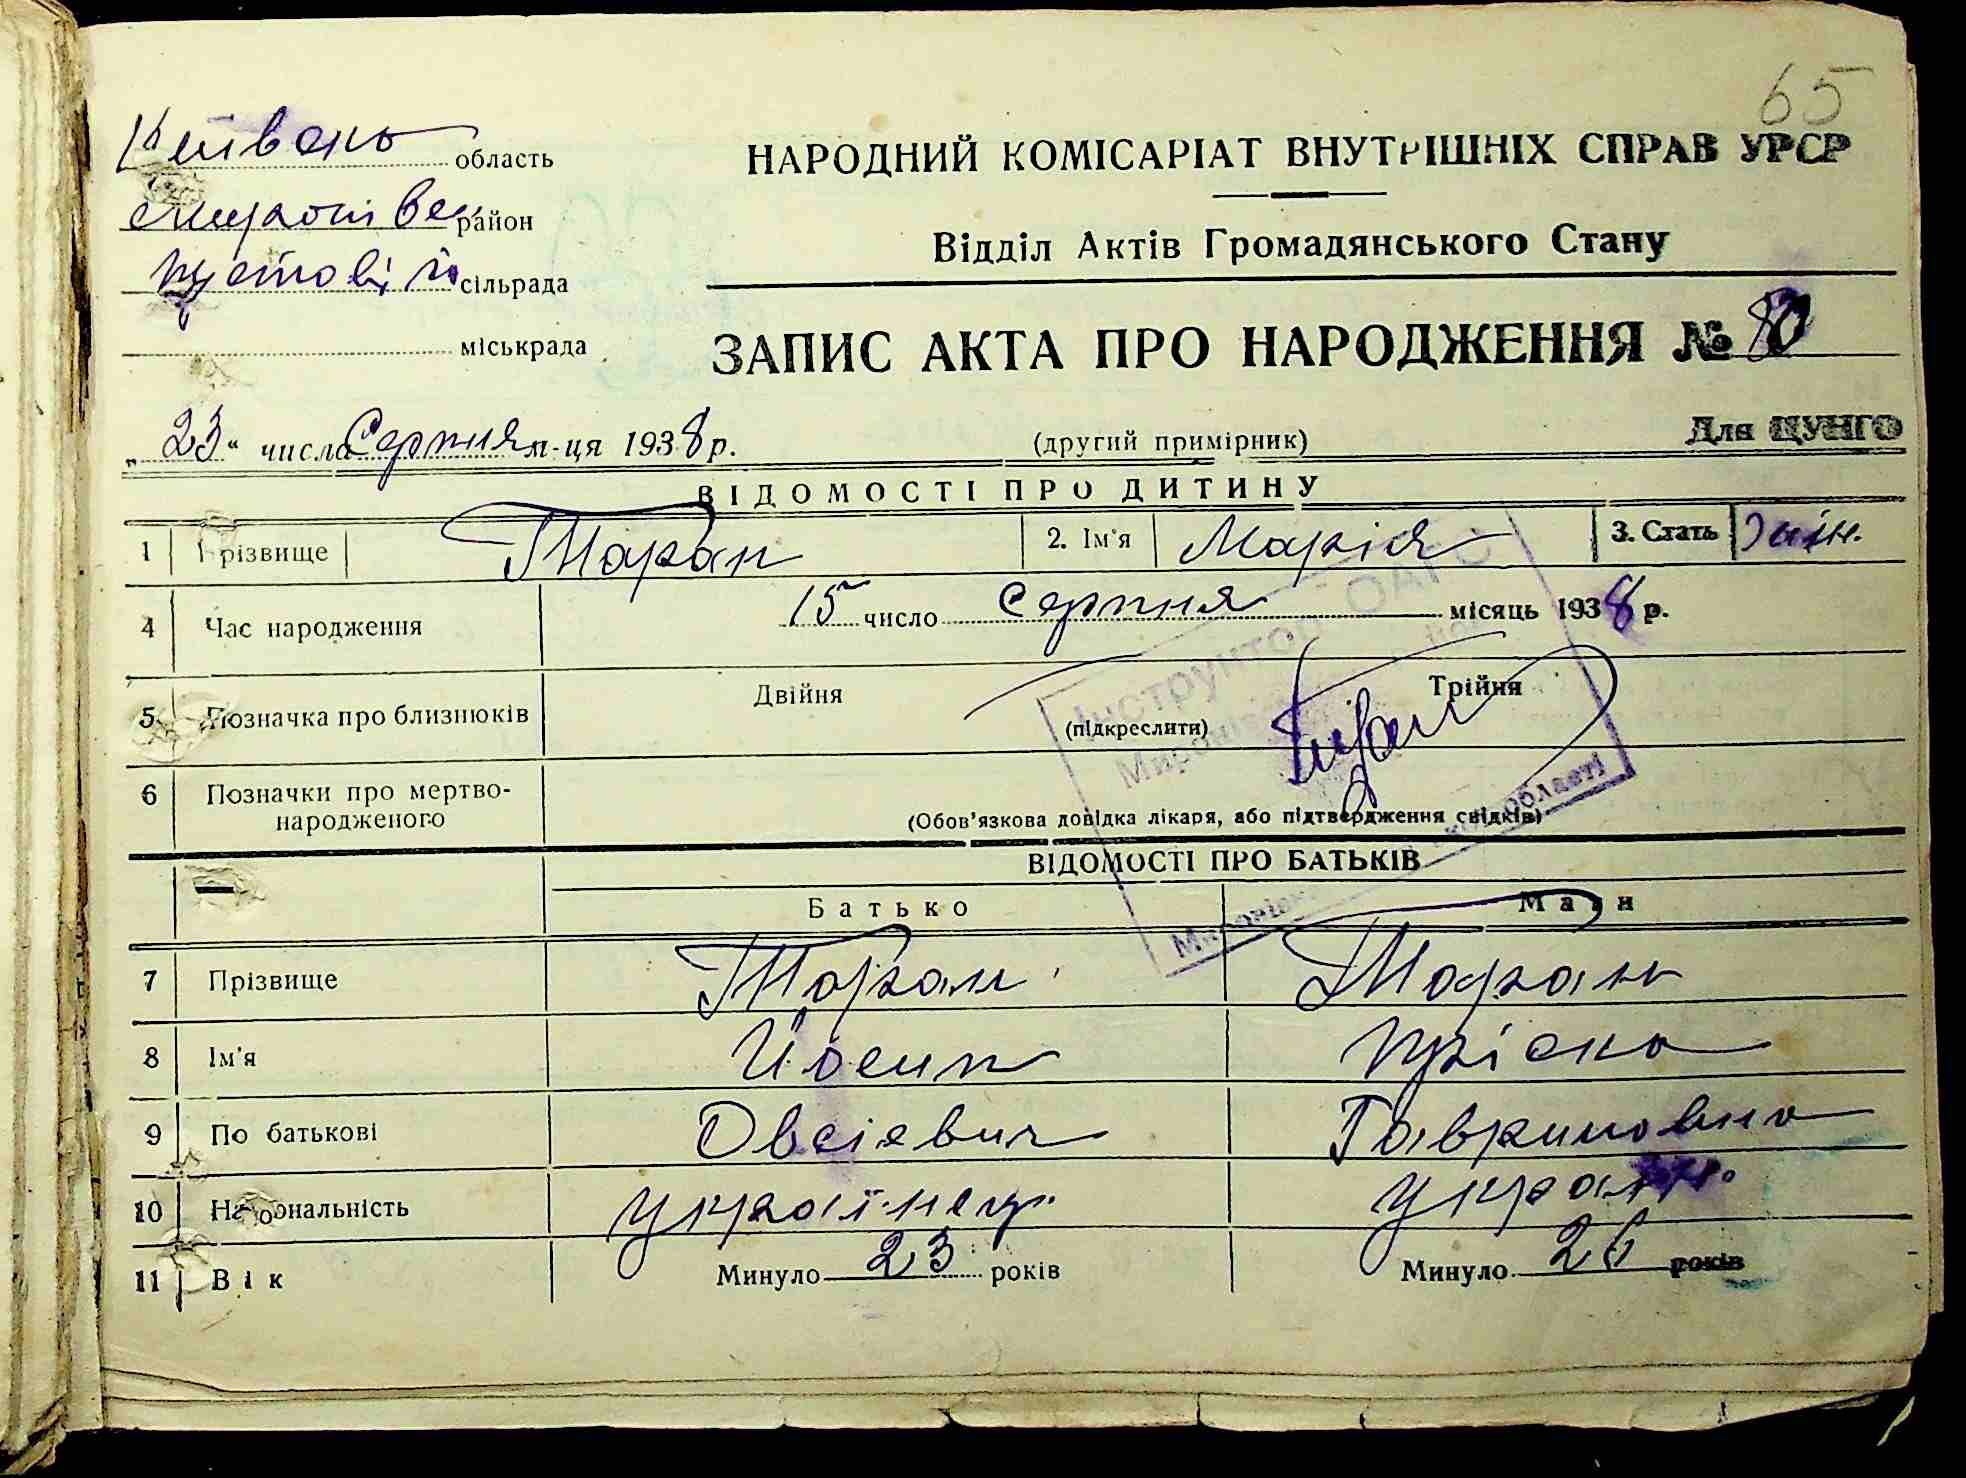 65
Київськ область
НАРОДНИЙ КОМІСАРІАТ ВНУТРІШНІХ СПРАВ УРСР
район
Відділ Актів Громадянського Стану
сільрада
міськрада
ЗАПИС АКТА ПРО НАРОДЖЕННЯ № 80
„23“ числа Серпня м-ця 1938 р.
(другий примірник)
Для ЦУНГО
ВІДОМОСТІ ПРО ДИТИНУ
1 Прізвище Таран 2. Ім'я Марія 3. Стать жін.
4 Час народження 15 число Серпня місяць 1938 р.
5 Позначка про близнюків Двійня (підкреслити) Трійня
6 Позначки про мертво-
народженого
(Обов'язкова довідка лікаря, або підтвердження свідків)
ВІДОМОСТІ ПРО БАТЬКІВ
Батько Мати
7 Прізвище Таран Таран
8 Ім'я Йосип Пріська
9 По батькові Овсієвич Гавриловна
10 Національність українец. україн.
11 Вік Минуло 23 років Минуло 26 років